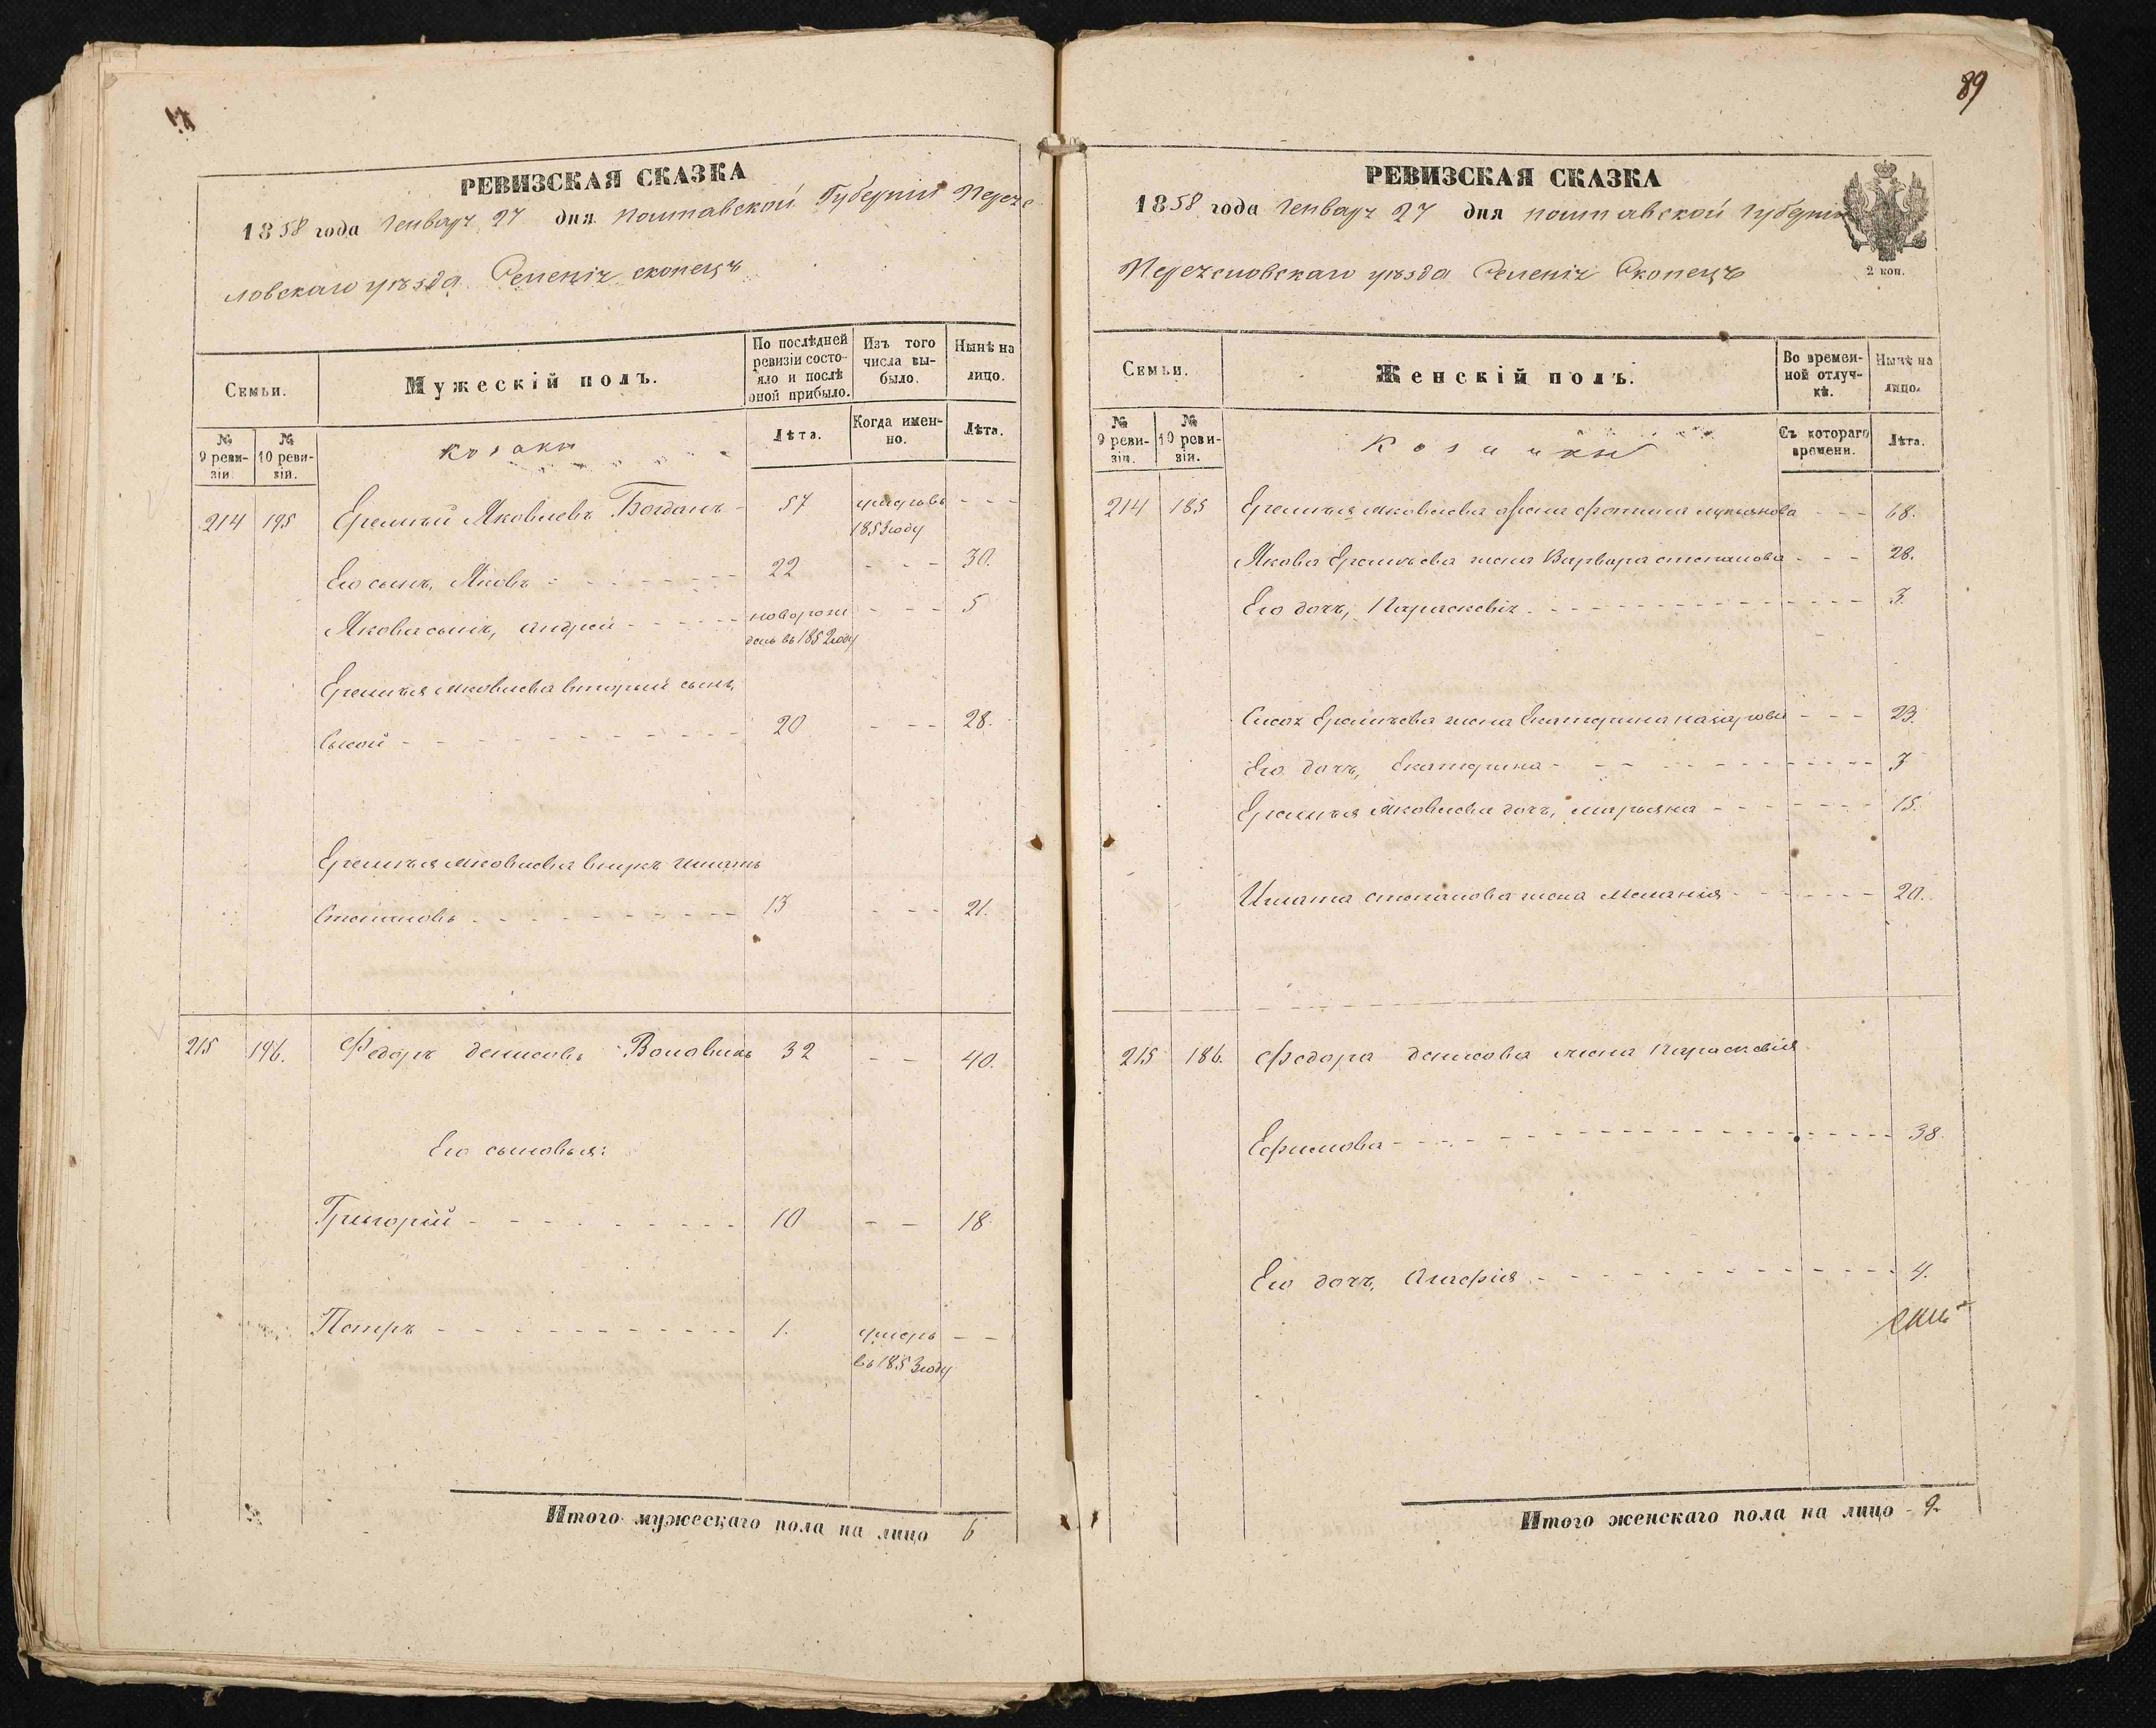 РЕВИЗСКАЯ СКАЗКА
1858 года Генваря 27 дня Полтавской Губерніи Перея
словскаго уѣзда Селенія Скопецъ
Семьи.
Мужескій полъ.
По послѣдней ревизіи состояло и послѣ оной прибыло.
Изъ того числа выбыло.
Нынѣ на лицо.
№ 9 ревизіи.
№ 10 ревизіи.
Козаки
Лѣта.
Когда именно.
Лѣта.
214 195 Еремѣй Яковлевъ Богданъ - 57 умеръ въ - - -
1853 году
Его сынъ, Яковъ - - - - 22 - - - 30.
Якова сынъ, Андрей - - - - новорож - - - 5
денъ въ 1852 году
Еремѣя Яковлева вторый сынъ,
Сысой - - - - 20 - - - 28.
Еремѣя Яковлева внукъ Игнатъ
Степановъ - - - - 13 - - - 21.
215 196. Федоръ Денисовъ Воловикъ 32 - - 40.
Его сыновья:
Григорій - - - - 10 - - 18
Петръ - - - - 1. умеръ - -
въ 1853 году
Итого мужескаго пола на лицо 6
89
РЕВИЗСКАЯ СКАЗКА
1858 года Генваря 27 дня Полтавской Губерніи
Переяславскаго уѣзда Селенія Скопецъ
2 коп.
Семьи.
Женскій полъ.
Во временной отлучкѣ.
Нынѣ на лицо.
№ 9 ревизіи.
№ 10 ревизіи.
Козачки
Съ котораго времени.
Лѣта.
214 185 Еремѣя Яковлева жена Фотина Лукьянова - - - 68.
Якова Еремѣева жена Варвара Степанова - - - 28.
Его дочь, Параскевія - - - - 3.
Сысоя Еремѣева жена Екатерина Назарова - - - 23.
Его дочь, Екатерина - - - - 3
Еремѣя Яковлева дочь, Марьяна - - - - 15.
Игната Степанова жена Меланія - - - - 20.
215 186. Федора Денисова жена Параскевія
Ефимова - - - - 38.
Его дочь, Агафія - - - - 4.
Итого женскаго пола на лицо - 9